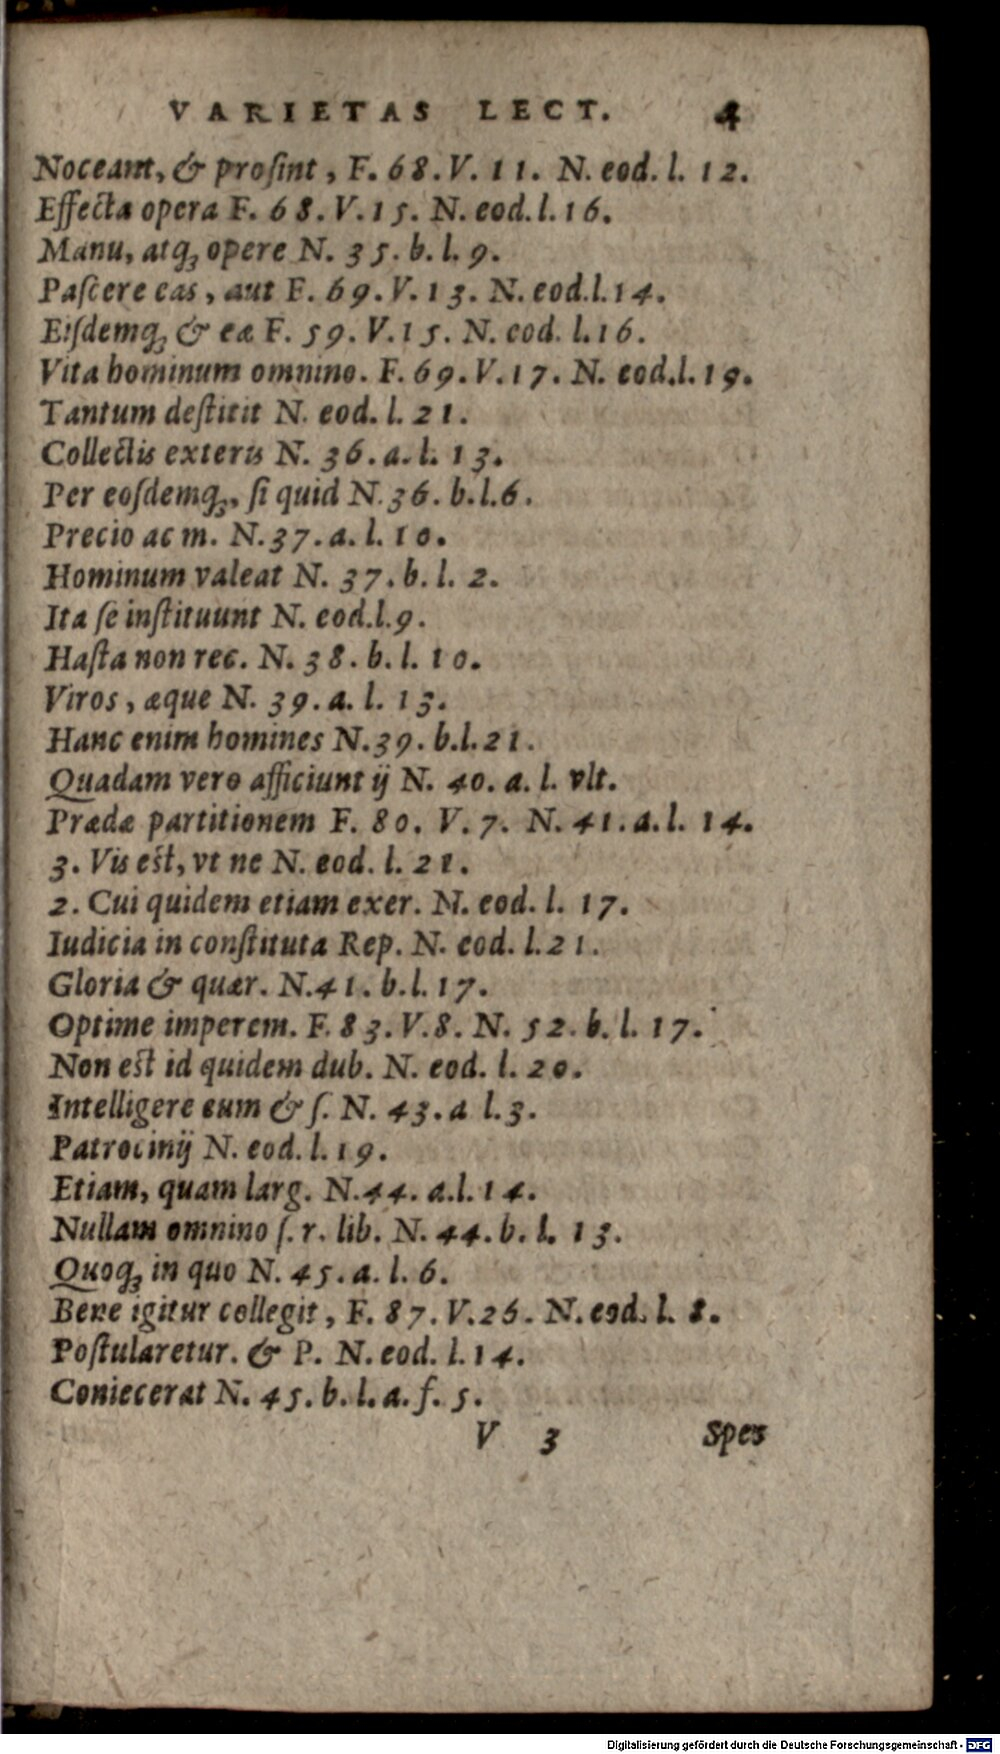 VARIETAS LECT. 4
Noceant, & prosint, F. 68. V. 11. N. eod. l. 12.
Effecta opera F. 68. V. 15. N. eod. l. 16.
Manu, atqꝫ opere N. 35. b. l. 9.
Paſcere eas, aut F. 69. V. 13. N. eod. l. 14.
Eiſdemqꝫ & ea F. 59. V. 15. N. eod. l. 16.
Vita hominum omnino. F. 69. V. 17. N. eod. l. 19.
Tantum deſtitit N. eod. l. 21.
Collectis exteris N. 36. a. l. 13.
Per eoſdemqꝫ, ſi quid N. 36. b. l. 6.
Precio ac m. N. 37. a. l. 10.
Hominum valeat N. 37. b. l. 2.
Ita ſe inſtituunt N. eod. l. 9.
Haſta non rec. N. 38. b. l. 10.
Viros, æque N. 39. a. l. 13.
Hanc enim homines N. 39. b. l. 21.
Quadam vero afficiunt ij N. 40. a. l. vlt.
Prædæ partitionem F. 80. V. 7. N. 41. a. l. 14.
3. Vis eſt, vt ne N. eod. l. 21.
2. Cui quidem etiam exer. N. eod. l. 17.
Iudicia in conſtituta Rep. N. eod. l. 21.
Gloria & quær. N. 41. b. l. 17.
Optime imperem. F. 83. V. 8. N. 52. b. l. 17.
Non eſt id quidem dub. N. eod. l. 20.
Intelligere eum & ſ. N. 43. a l. 3.
Patrocinij N. eod. l. 19.
Etiam, quam larg. N. 44. a. l. 14.
Nullam omnino ſ. r. lib. N. 44. b. l. 13.
Quoqꝫ in quo N. 45. a. l. 6.
Bene igitur collegit, F. 87. V. 26. N. eod. l. 8.
Poſtularetur. & P. N. eod. l. 14.
Coniecerat N. 45. b. l. a. f. 5.
V 3 Spes
Digitalisierung gefördert durch die Deutsche Forschungsgemeinschaft - DFG